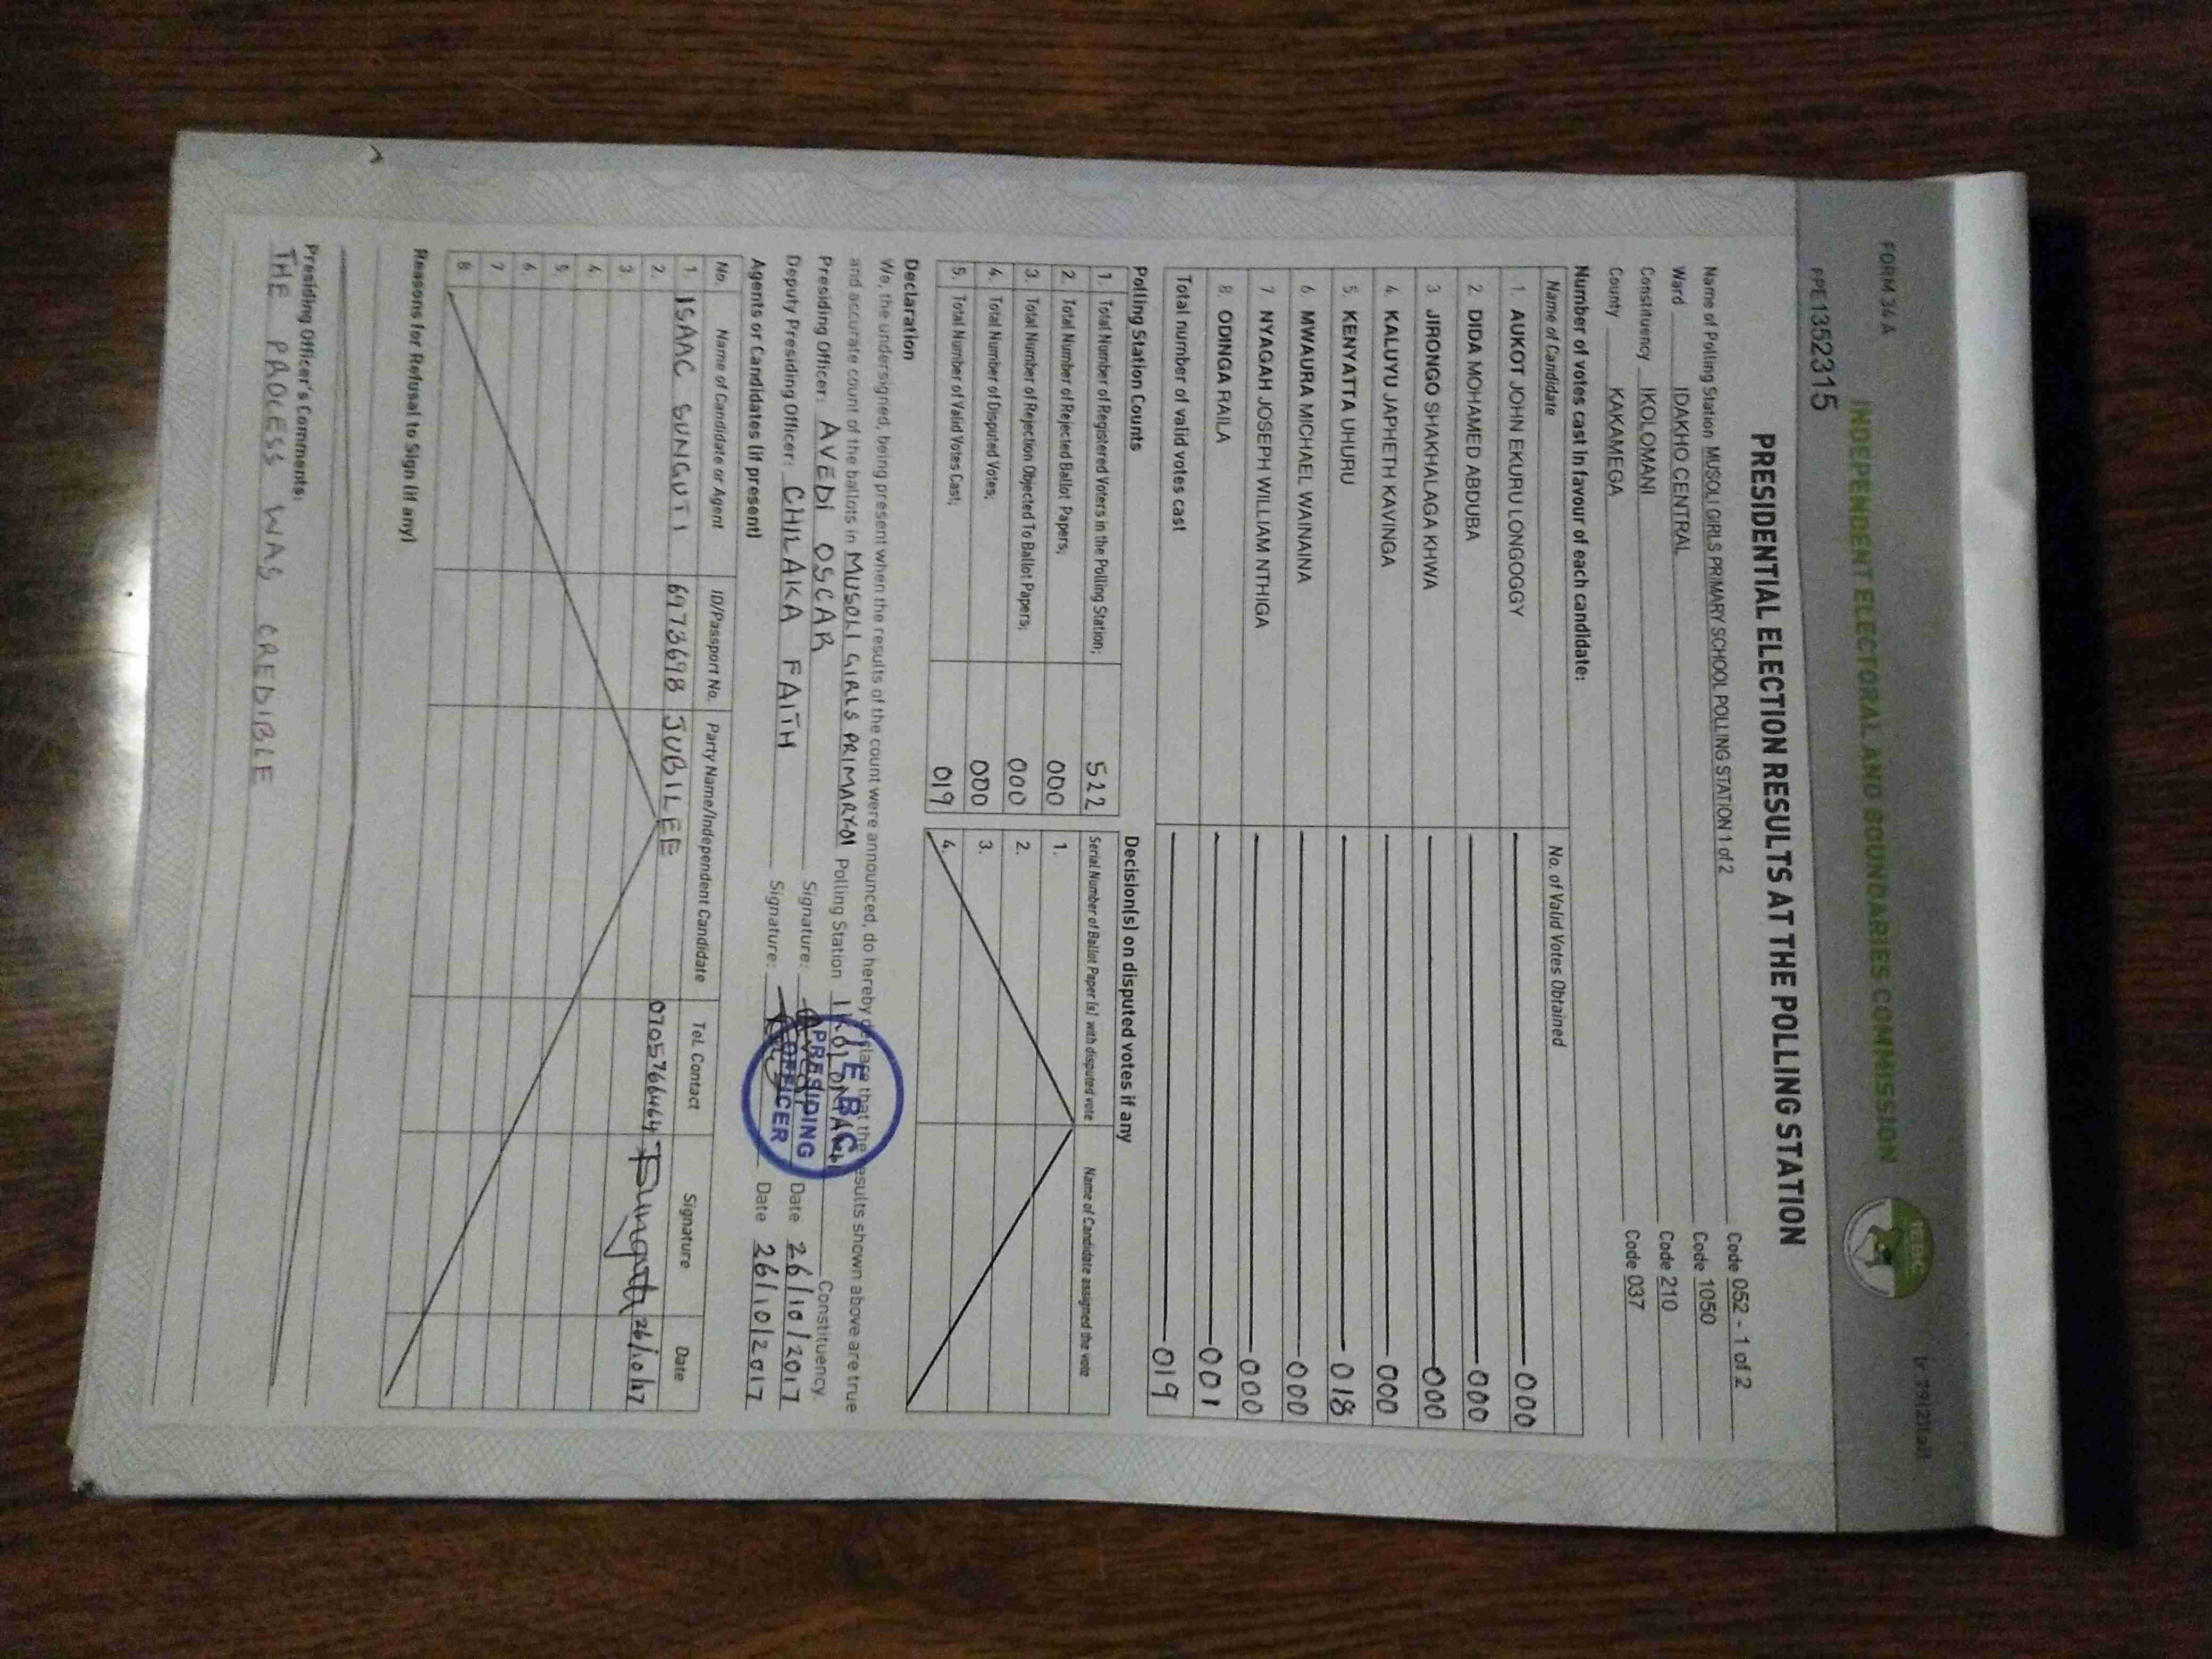 FORM 34A
INDEPENDENT ELECTORAL AND BOUNDARIES COMMISSION
IEBC
PPE1352315
PRESIDENTIAL ELECTION RESULTS AT THE POLLING STATION
Name of Polling Station MUSOLI GIRLS PRIMARY SCHOOL POLLING STATION 1 of 2 Code 052 - 1 of 2
Ward IDAKHO CENTRAL Code 1050
Constituency IKOLOMANI Code 210
County KAKAMEGA Code 037
Number of votes cast in favour of each candidate:
Name of Candidate No. of Valid Votes Obtained
1. AUKOT JOHN EKURU LONGOGGY 000
2. DIDA MOHAMED ABDUBA 000
3. JIRONGO SHAKHALAGA KHWA 000
4. KALUYU JAPHETH KAVINGA 000
5. KENYATTA UHURU 018
6. MWAURA MICHAEL WAINAINA 000
7 NYAGAH JOSEPH WILLIAM NTHIGA 000
8. ODINGA RAILA 001
Total number of valid votes cast 019
Polling Station Counts
1. Total Number of Registered Voters in the Polling Station; 522
2. Total Number of Rejected Ballot Papers; 000
3. Total Number of Rejection Objected To Ballot Papers; 000
4. Total Number of Disputed Votes; 000
5. Total Number of Valid Votes Cast; 019
Decision(s) on disputed votes if any
Serial Number of Ballot Paper (s) with disputed vote Name of Candidate assigned the vote
1.
2.
3.
4.
Declaration
We, the undersigned, being present when the results of the count were announced, do hereby declare that the results shown above are true
and accurate count of the ballots in MUSOLI GIRLS PRIMARY-01 Polling Station Constituency.
Presiding Officer: AVEDI OSCAR Signature: Date 26/10/2017
Deputy Presiding Officer: CHILAKA FAITH Signature: Date 26/10/2017
IEBC
PRESIDING
OFFICER
Agents or Candidates (if present)
No. Name of Candidate or Agent ID/Passport No. Party Name/Independent Candidate Tel. Contact Signature Date
1. ISAAC SUNGUTI 6973698 JUBILEE 0705766464 26/10/17
2.
3.
4.
5.
6.
7.
8.
Reasons for Refusal to Sign (if any)
Presiding Officer's Comments:
THE PROCESS WAS CREDIBLE